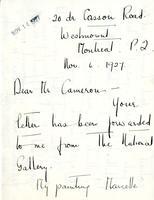 NOV 10 1927
20 de Casson Road.
Westmount
Montreal P.Q.
Nov. 6. 1927.
Dear Mr Cameron -
Your
letter has been forwarded
to me from the National
Gallery.
My painting Marcelle